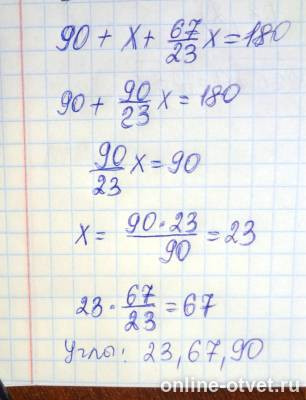 90 + x + 67/23 x = 180
90 + 90/23 x = 180
90/23 x = 90
x = 90·23/90 = 23
23 · 67/23 = 67
Углы: 23, 67, 90
online-otvet.ru